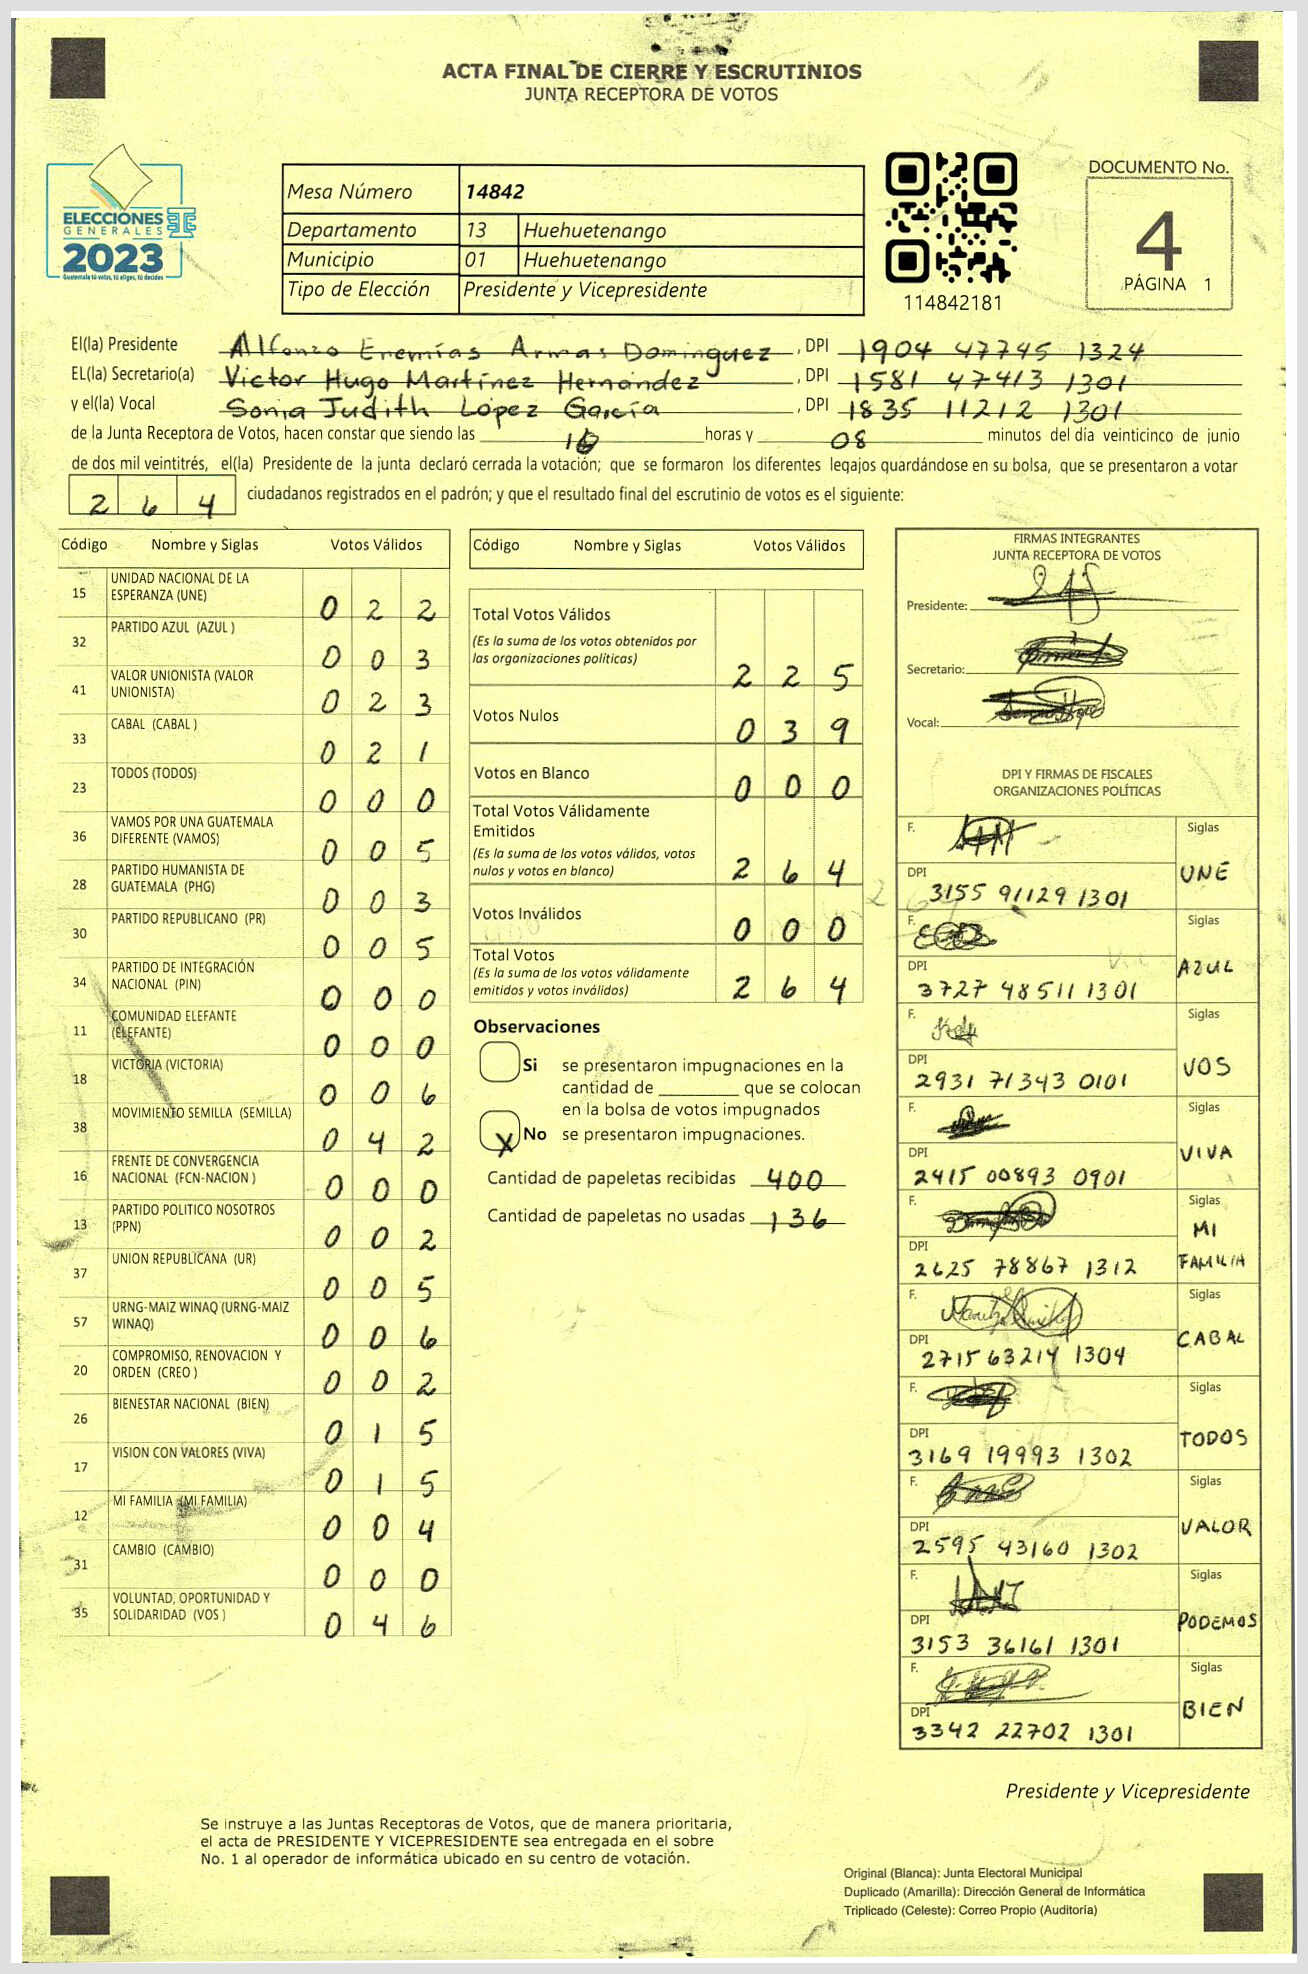 ACTA FINAL DE CIERRE Y ESCRUTINIOS
JUNTA RECEPTORA DE VOTOS
ELECCIONES
GENERALES
2023
Guatemala tú votas, tú eliges, tú decides
Mesa Número 14842
Departamento 13 Huehuetenango
Municipio 01 Huehuetenango
Tipo de Elección Presidente y Vicepresidente
114842181
DOCUMENTO No.
4
PÁGINA 1
El(la) Presidente Alfonzo Enemías Armas Dominguez , DPI 1904 47745 1324
EL(la) Secretario(a) Victor Hugo Martínez Hernández , DPI 1581 47413 1301
y el(la) Vocal Sonia Judith López García , DPI 1835 11212 1301
de la Junta Receptora de Votos, hacen constar que siendo las horas y 08 minutos del día veinticinco de junio
de dos mil veintitrés, el(la) Presidente de la junta declaró cerrada la votación; que se formaron los diferentes legajos guardándose en su bolsa, que se presentaron a votar
2 6 4 ciudadanos registrados en el padrón; y que el resultado final del escrutinio de votos es el siguiente:
Código Nombre y Siglas Votos Válidos
15 UNIDAD NACIONAL DE LA
ESPERANZA (UNE) 0 2 2
32 PARTIDO AZUL (AZUL ) 0 0 3
41 VALOR UNIONISTA (VALOR
UNIONISTA) 0 2 3
33 CABAL (CABAL ) 0 2 1
23 TODOS (TODOS) 0 0 0
36 VAMOS POR UNA GUATEMALA
DIFERENTE (VAMOS) 0 0 5
28 PARTIDO HUMANISTA DE
GUATEMALA (PHG) 0 0 3
30 PARTIDO REPUBLICANO (PR) 0 0 5
34 PARTIDO DE INTEGRACIÓN
NACIONAL (PIN) 0 0 0
11 COMUNIDAD ELEFANTE
(ELEFANTE) 0 0 0
18 VICTORIA (VICTORIA) 0 0 6
38 MOVIMIENTO SEMILLA (SEMILLA) 0 4 2
16 FRENTE DE CONVERGENCIA
NACIONAL (FCN-NACION ) 0 0 0
13 PARTIDO POLITICO NOSOTROS
(PPN) 0 0 2
37 UNION REPUBLICANA (UR) 0 0 5
57 URNG-MAIZ WINAQ (URNG-MAIZ
WINAQ) 0 0 6
20 COMPROMISO, RENOVACION Y
ORDEN (CREO ) 0 0 2
26 BIENESTAR NACIONAL (BIEN) 0 1 5
17 VISION CON VALORES (VIVA) 0 1 5
12 MI FAMILIA (MI FAMILIA) 0 0 4
31 CAMBIO (CAMBIO) 0 0 0
35 VOLUNTAD, OPORTUNIDAD Y
SOLIDARIDAD (VOS ) 0 4 6
Código Nombre y Siglas Votos Válidos
Total Votos Válidos
(Es la suma de los votos obtenidos por
las organizaciones políticas) 2 2 5
Votos Nulos 0 3 9
Votos en Blanco 0 0 0
Total Votos Válidamente
Emitidos
(Es la suma de los votos válidos, votos
nulos y votos en blanco) 2 6 4
Votos Inválidos 0 0 0
Total Votos
(Es la suma de los votos válidamente
emitidos y votos inválidos) 2 6 4
Observaciones
Si se presentaron impugnaciones en la
cantidad de que se colocan
en la bolsa de votos impugnados
X No se presentaron impugnaciones.
Cantidad de papeletas recibidas 400
Cantidad de papeletas no usadas 136
FIRMAS INTEGRANTES
JUNTA RECEPTORA DE VOTOS
Presidente:
Secretario:
Vocal:
DPI Y FIRMAS DE FISCALES
ORGANIZACIONES POLÍTICAS
F. Siglas
DPI 3155 91129 1301 UNE
F. Siglas
DPI 3727 48511 1301 AZUL
F. Siglas
DPI 2931 71343 0101 VOS
F. Siglas
DPI 2415 00893 0901 VIVA
F. Siglas
DPI 2625 78867 1312 MI FAMILIA
F. Siglas
DPI 2715 63214 1304 CABAL
F. Siglas
DPI 3169 19993 1302 TODOS
F. Siglas
DPI 2595 43160 1302 VALOR
F. Siglas
DPI 3153 36161 1301 PODEMOS
F. Siglas
DPI 3342 22702 1301 BIEN
Presidente y Vicepresidente
Se instruye a las Juntas Receptoras de Votos, que de manera prioritaria,
el acta de PRESIDENTE Y VICEPRESIDENTE sea entregada en el sobre
No. 1 al operador de informática ubicado en su centro de votación.
Original (Blanca): Junta Electoral Municipal
Duplicado (Amarilla): Dirección General de Informática
Triplicado (Celeste): Correo Propio (Auditoría)